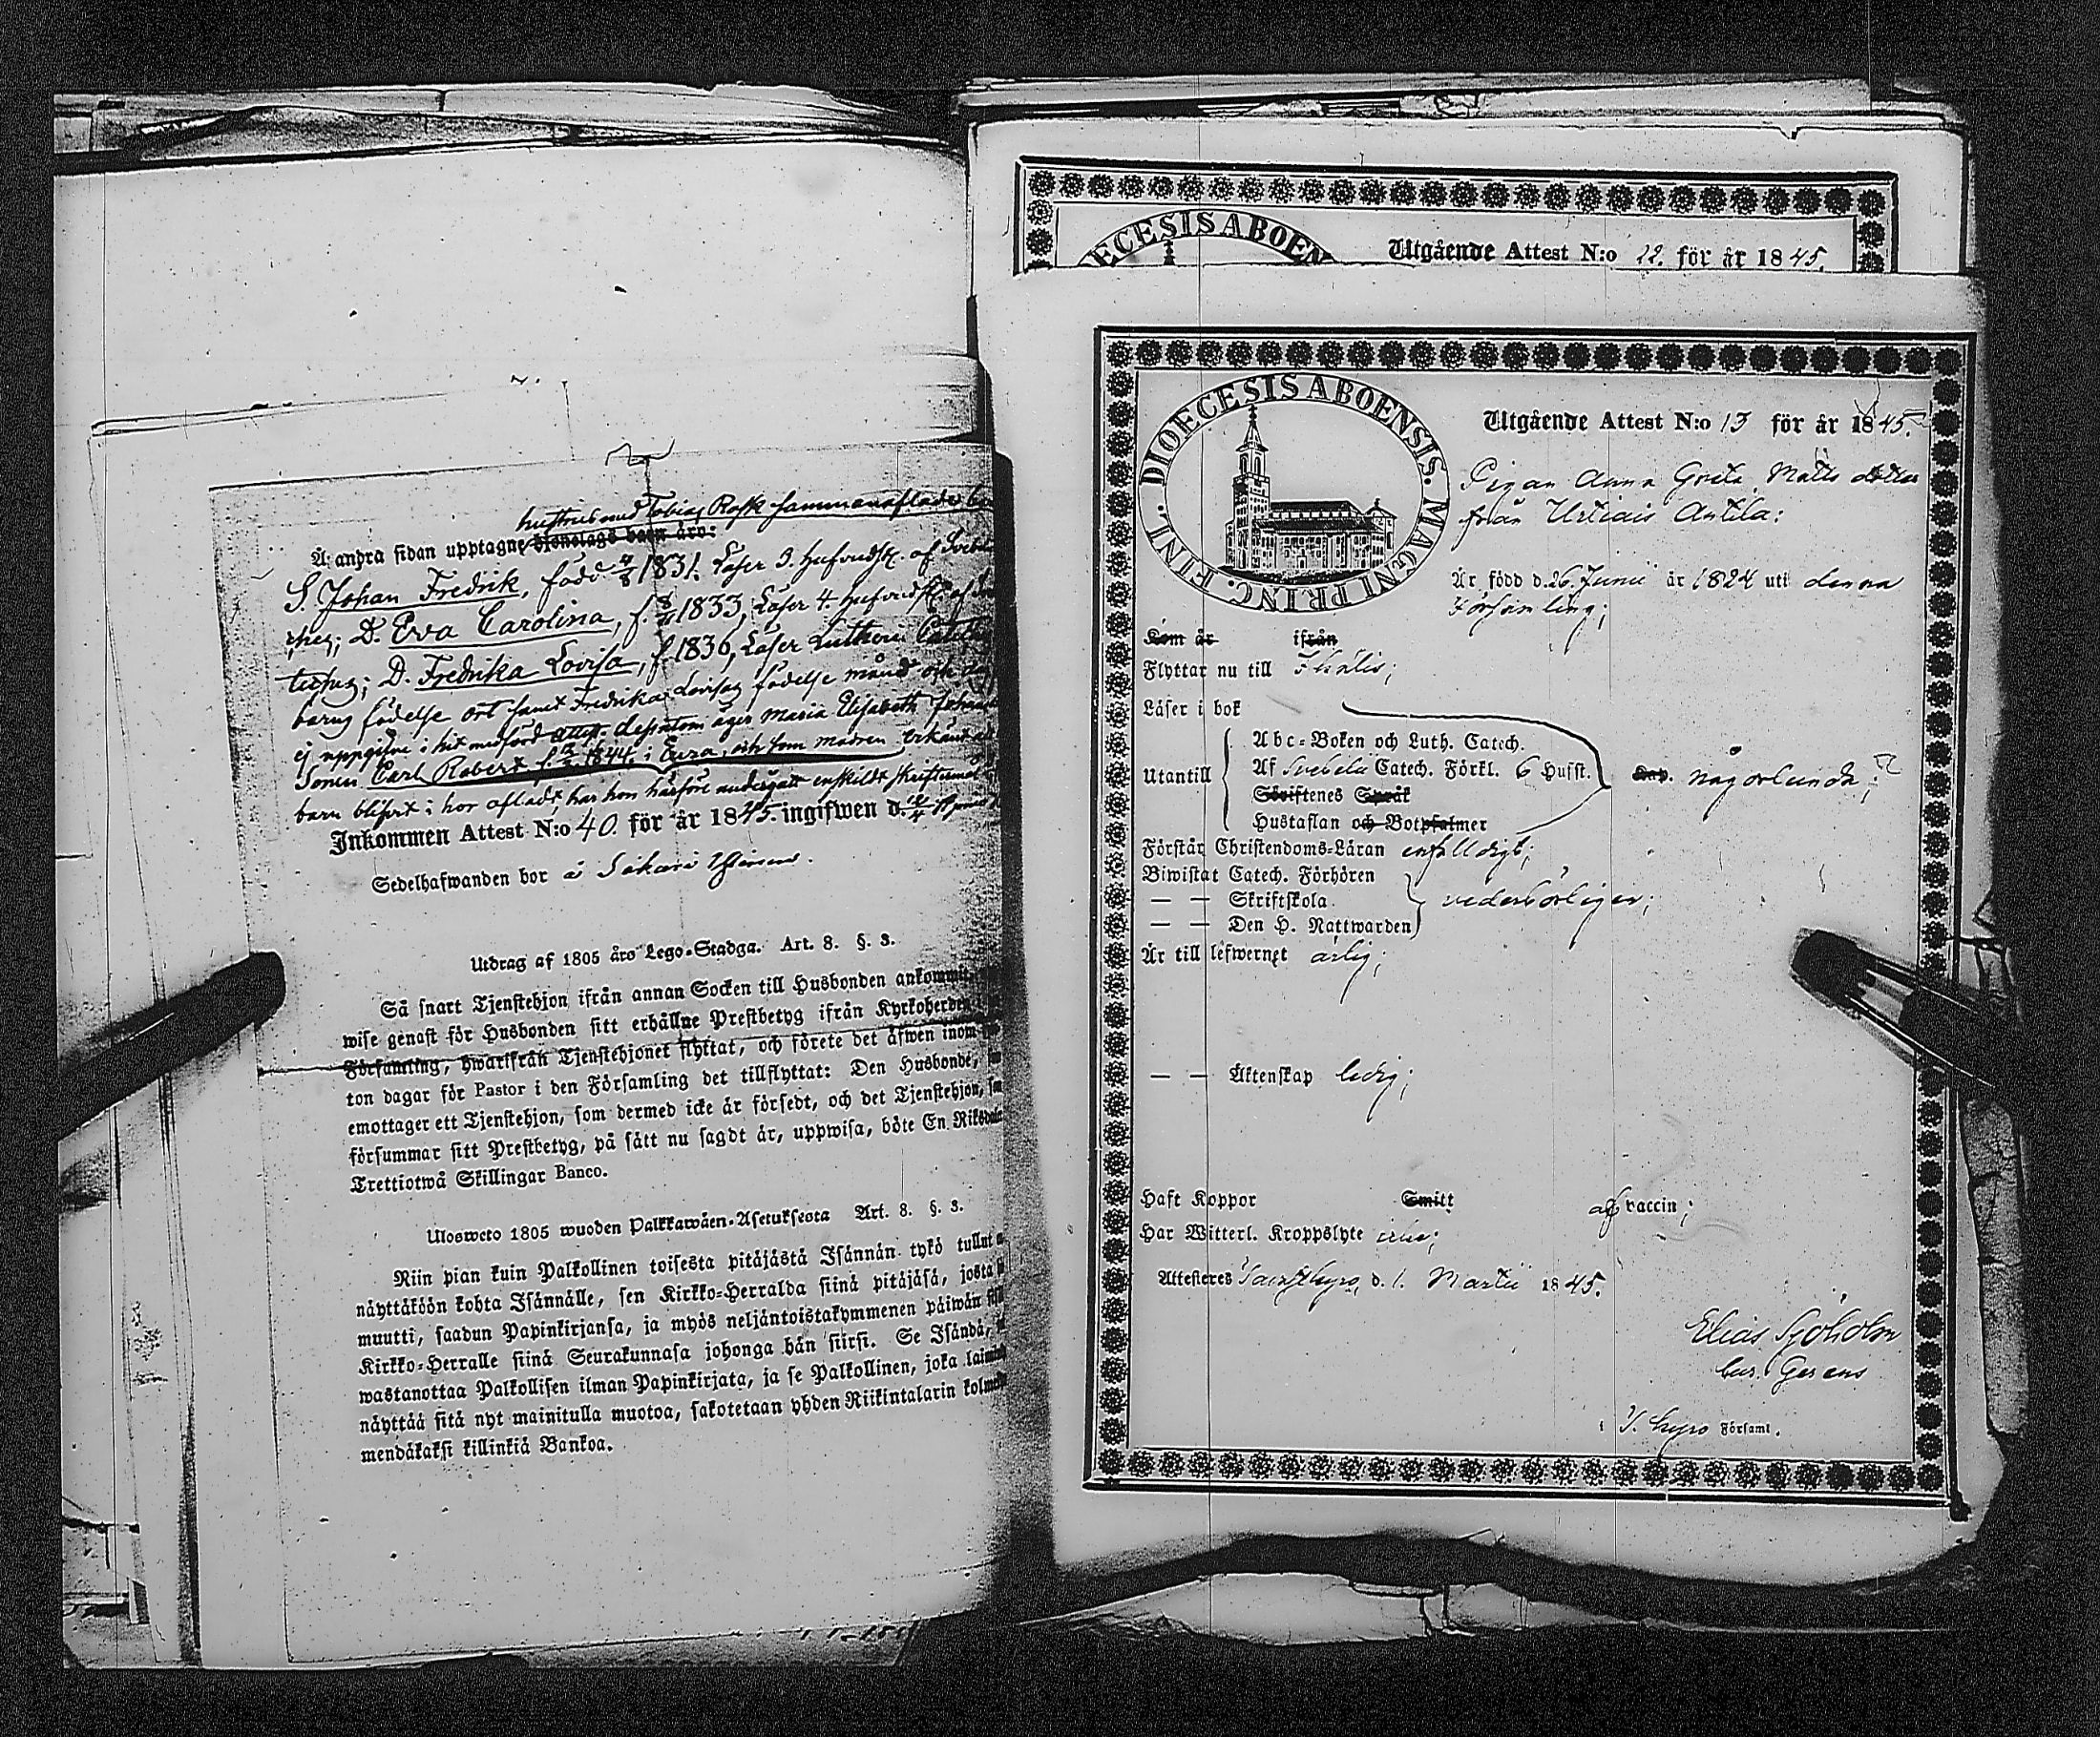 hustrus med Tobias Rosk sammanaflade
Å andra sidan upptagne hjonelags barn äro:
S. Johan Fredrik, född 4/8 1831. Läser 3. hufvudst. af Svebe
D. Eva Carolina, f. 1833, Läser 4. hufvudst. af
D. Fredrika Lovisa, f. 1836, Läser Lutheri Cateche
barns födelse ort samt Fredrika Lovisas födelse månad och dag
ej uppgifne i hit medförd attest. dessutom äger Maria Elisabeth
Sonen Carl Robert f. 1844. i Eura, och som modren erkänt
barn blifvit i hor aflad har hon härföre undergått enskildt skriftermål
Inkommen Attest N:o 40. för år 1845. ingifwen d.
Sedelhafwanden bor å Säkari
Utdrag af 1805 års Lego-Stadga. Art. 8. §. 3.
Så snart Tjenstehjon ifrån annan Socken till Husbonden ankommit,
wise genast för Husbonden sitt erhållne Prestbetyg ifrån Kyrkoherden
Församling, hwarifrån Tjenstehjonet flyttat, och förete det äfwen inom
ton dagar för Pastor i den Församling det tillflyttat: Den Husbonde,
emottager ett Tjenstehjon, som dermed icke är försedt, och det Tjenstehjon,
försummar sitt Prestbetyg, på sätt nu sagdt är, uppwisa, böte En Riksdaler
Trettiotwå Skillingar Banco.
Ulosweto 1805 wuoden Palkkawäen-Asetuksesta Art. 8. §. 3.
Niin pian kuin Palkollinen toisesta pitäjästä Isännän tykö tullut
näyttäköön kohta Isännälle, sen Kirkko-Herralda siinä pitäjäsä, josta
muutti, saadun Papinkirjansa, ja myös neljäntoistakymmenen päiwän
Kirkko-Herralle siinä Seurakunnasa johonga hän siirsi. Se Isändä,
wastanottaa Palkollisen ilman Papinkirjata, ja se Palkollinen, joka
näyttää sitä nyt mainitulla muotoa, sakotetaan yhden Riikintalarin
mendäkaksi killinkiä Bankoa.
ECESIS ABOEN
Utgående Attest N:o 22. för år 1845.
DIOECESIS ABOENSIS. MAGNI PRINC. FINL.
Utgående Attest N:o 13 för år 1845.
Pigan Anna Greta Matts dotter
från Urtiais Antila:
Är född d. 26. Junii år 1824 uti denna
Församling;
Kom är ifrån
Flyttar nu till
Läser i bok
Abc-Boken och Luth. Catech.
Utantill Af Svebelii Catech. Förkl. 6 Hufst. Kap. någorlunda;
Skriftenes Språk
Hustaflan och Botpsalmer
Förstår Christendoms-Läran enfalldigt;
Biwistat Catech. Förhören
— — Skriftskola vederbörligen;
— — Den H. Nattwarden
Är till lefwernet ärlig;
— — Äktenskap ledig;
Haft Koppor Smitt af vaccin;
Har Witterl. Kroppslyte icke;
Attesteres Tawastkyro, d. 1. Martii 1845.
Elias Sjöholm
cur. Gerens
i T. kyro Församl.